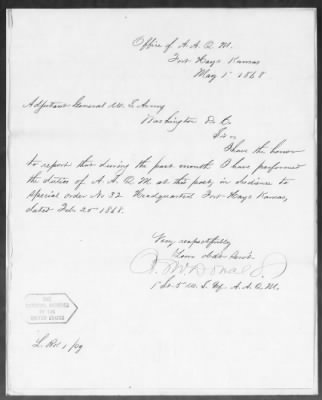 Office of A. A. Q. M.
Fort Hays Kansas
May 1st 1868
Adjutant General U. S. Army
Washington D. C.
Sir
I have the honor
to report that during the past month I have performed
the duties of A. A. Q. M. at this post, in obedience to
Special order No 32 Headquarters Fort Hays Kansas,
dated Feb. 25th 1868.
Very respectfully
Your Obdt Servt.
McDonald
1st Lt. 5th U. S. Inf. A. A. Q. M.
THE
NATIONAL ARCHIVES
OF THE
UNITED STATES